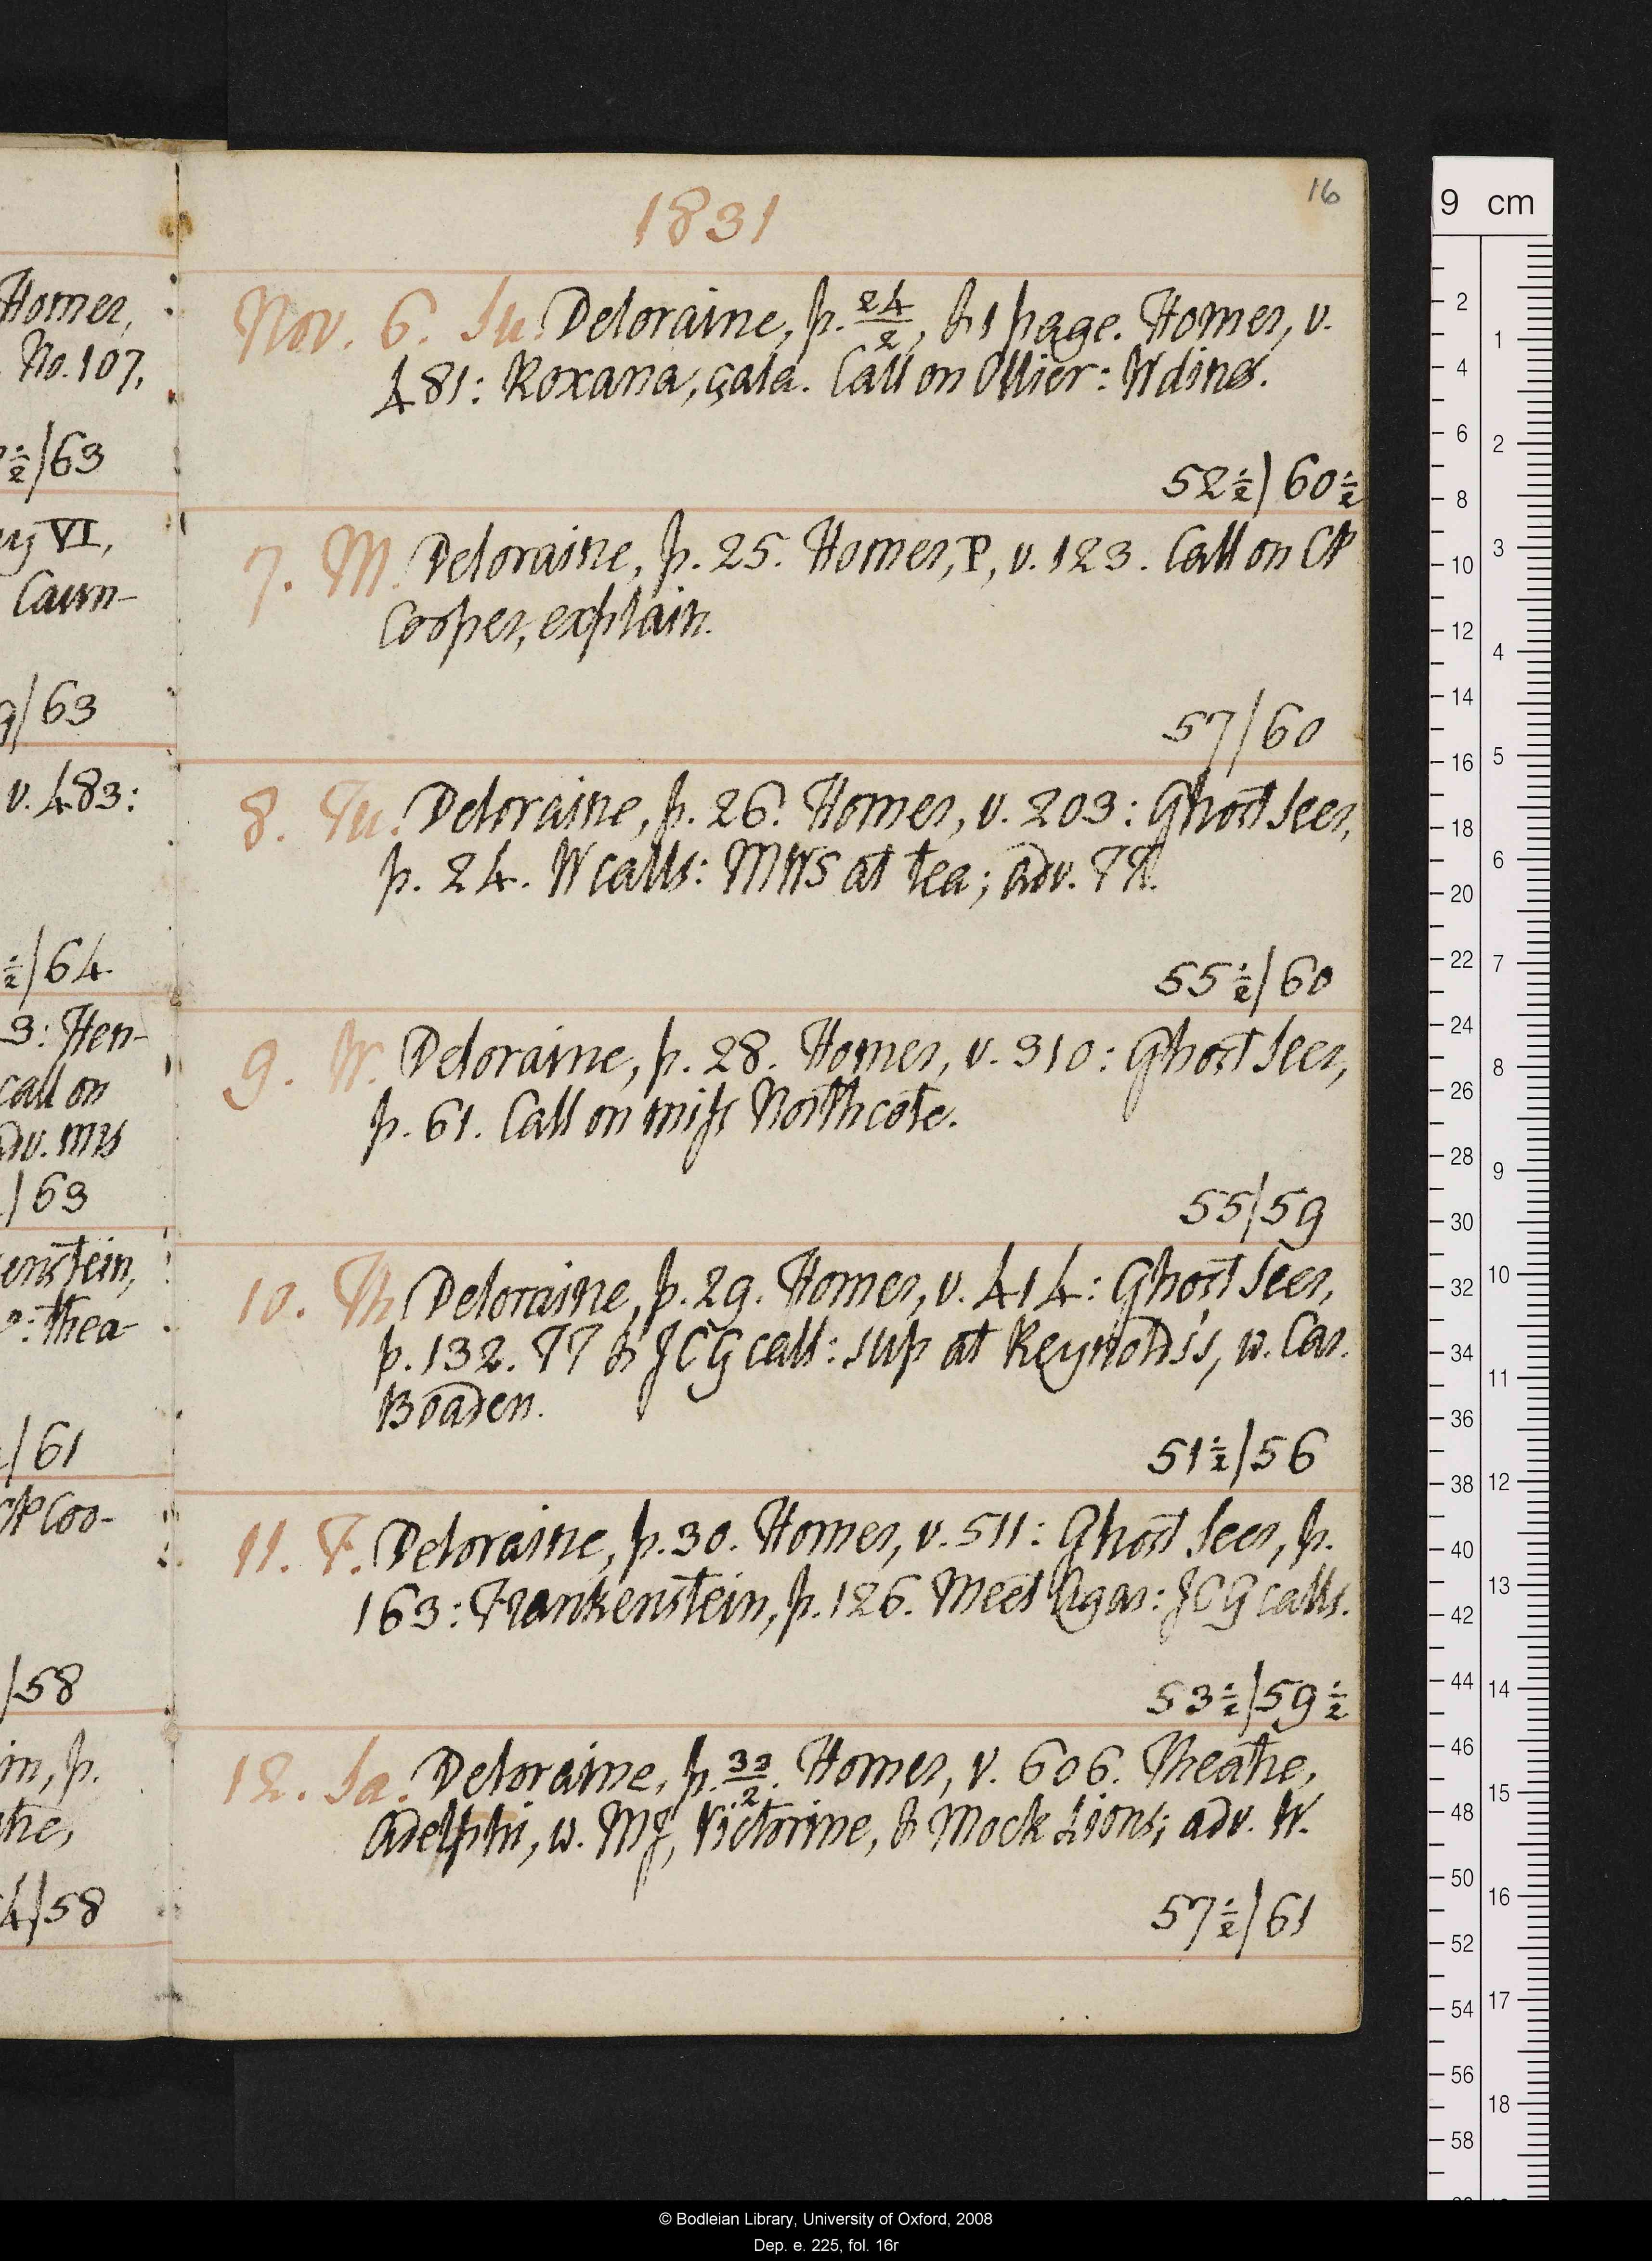 16
1831
Nov. 6. Su. Deloraine, p. 24/2, & 1 page. Homer, v.
481: Roxana, çala. Call on Ollier: W dines.
52½/60½
7. M. Deloraine, p. 25. Homer, P, v. 123. Call on CP
Cooper, explain.
57/60
8. Tu. Deloraine, p. 26. Homer, v. 203: Ghost Seer,
p. 24. W calls: MWS at tea; adv. TT.
55½/60
9. W. Deloraine, p. 28. Homer, v. 310: Ghost Seer,
p. 61. Call on miss Northcote.
55/59
10. Th Deloraine, p. 29. Homer, v. 414: Ghost Seer,
p. 132. TT & JCG call: sup at Reynolds's, w. Car.
Boaden.
51½/56
11. F. Deloraine, p. 30. Homer, v. 511: Ghost Seer, p.
163: Frankenstein, p. 126. Meet Agar: JCG calls.
53½/59½
12. Sa. Deloraine, p. 33/2. Homer, v. 606. Theatre,
Adelphi, w. MJ, Victorine, & Mock Lions; adv. W.
57½/61
Homer,
No. 107,
½/63
VI,
Caun-
9/63
v. 483:
½/64
3: Hen-
call on
adv. mrs
/63
enstein,
: thea-
/61
CP Coo-
/58
in, p.
tre,
4/58
9 cm
2
4
6
8
10
12
14
16
18
20
22
24
26
28
30
32
34
36
38
40
42
44
46
48
50
52
54
56
58
1
2
3
4
5
6
7
8
9
10
11
12
13
14
15
16
17
18
© Bodleian Library, University of Oxford, 2008
Dep. e. 225, fol. 16r